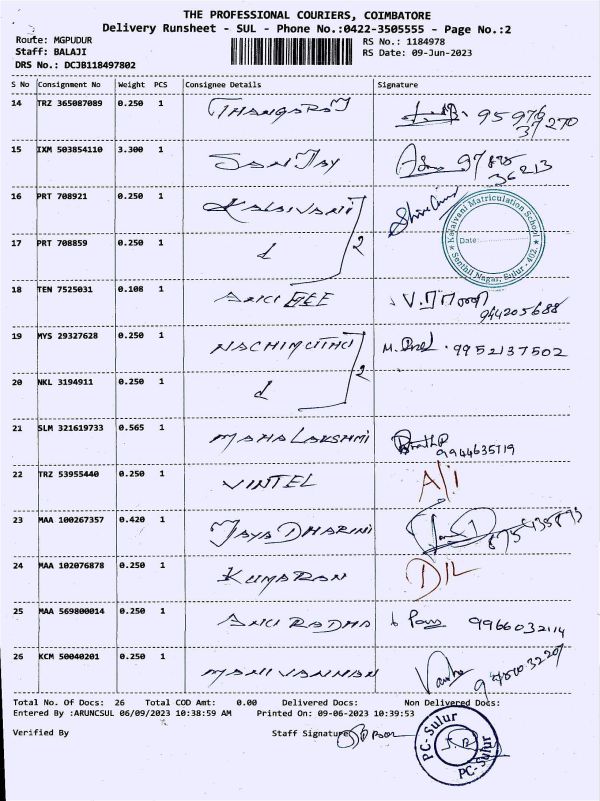 THE PROFESSIONAL COURIERS, COIMBATORE
Delivery Runsheet - SUL - Phone No.:0422-3505555 - Page No.:2
Route: MGPUDUR RS No.: 1184978
Staff: BALAJI RS Date: 09-Jun-2023
DRS No.: DCJB118497802
S No Consignment No Weight PCS Consignee Details Signature
14 TRZ 365087089 0.250 1 THANGARAJ 95976
37270
15 IXM 503854110 3.300 1 SANJAY
36213
16 PRT 708921 0.250 1 KALAIVANI
17 PRT 708859 0.250 1 2
Kalaivani Matriculation School
Date:
Senthil Nagar, Sulur - 402.
18 TEN 7525031 0.108 1
944205688
19 MYS 29327628 0.250 1 NACHIMUTHU 9952137502
20 NKL 3194911 0.250 1 2
21 SLM 321619733 0.565 1 MAHALAKSHMI
9944635719
22 TRZ 53955440 0.250 1 VINTEL
23 MAA 100267357 0.420 1 JAYADHARINI
24 MAA 102076878 0.250 1 KUMARAN
25 MAA 569800014 0.250 1 ANURADHA 9966032114
26 KCM 50040201 0.250 1 MANIVANNAN
Total No. Of Docs: 26 Total COD Amt: 0.00 Delivered Docs: Non Delivered Docs:
Entered By :ARUNCSUL 06/09/2023 10:38:59 AM Printed On: 09-06-2023 10:39:53
Verified By Staff Signature
PC- Sulur
PC- Sulur